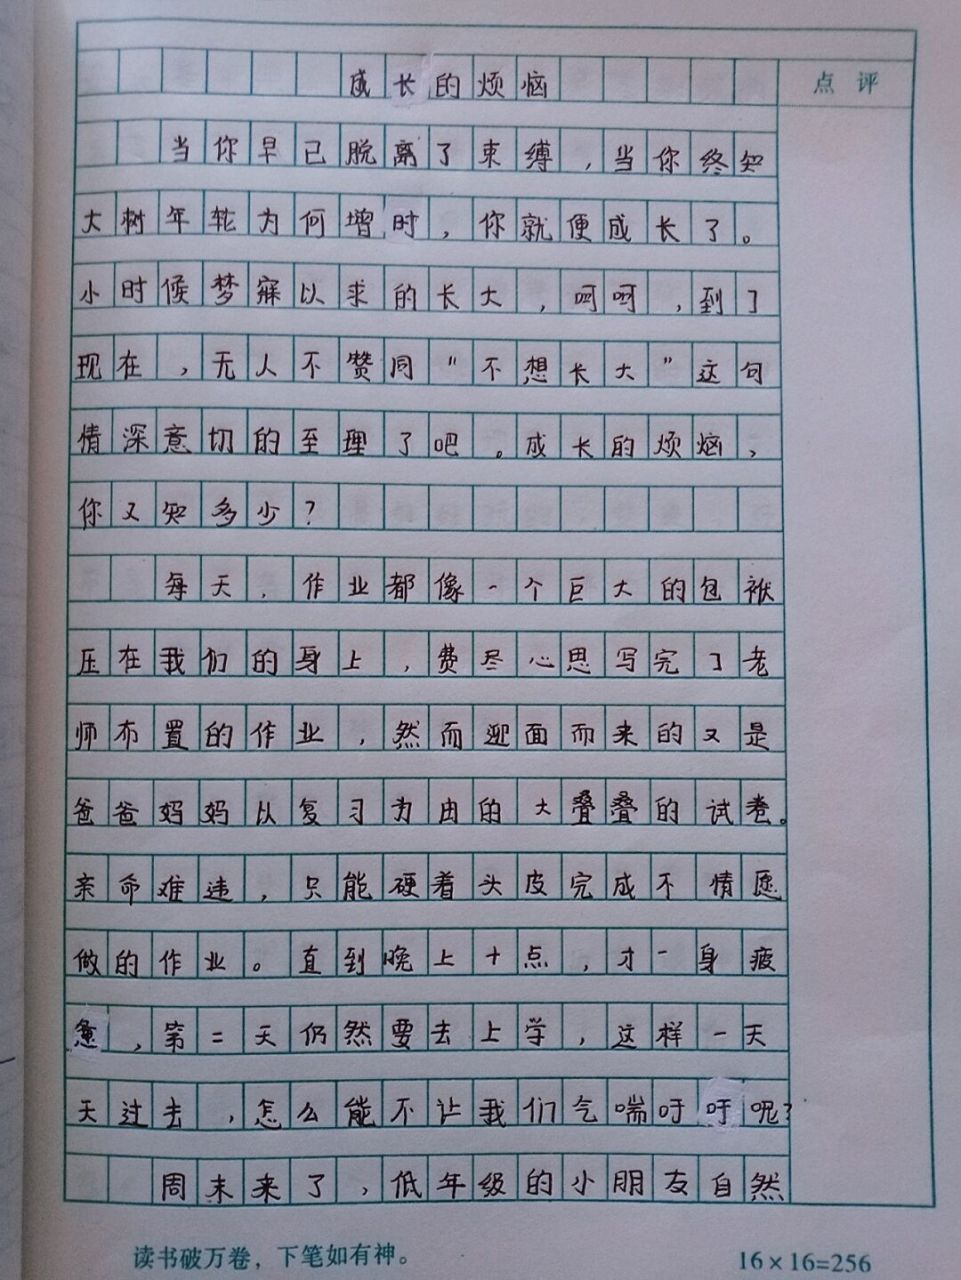 成长的烦恼
点 评
当你早已脱离了束缚，当你终知
大树年轮为何增时，你就便成长了。
小时候梦寐以求的长大，呵呵，到了
现在，无人不赞同“不想长大”这句
情深意切的至理了吧。成长的烦恼，
你又知多少？
每天，作业都像一个巨大的包袱
压在我们的身上，费尽心思写完了老
师布置的作业，然而迎面而来的又是
爸爸妈妈以复习为由的大叠叠的试卷。
亲命难违，只能硬着头皮完成不情愿
做的作业。直到晚上十点，才一身疲
惫，第二天仍然要去上学，这样一天
天过去，怎么能不让我们气喘吁吁呢？
周末来了，低年级的小朋友自然
读书破万卷，下笔如有神。
16×16=256